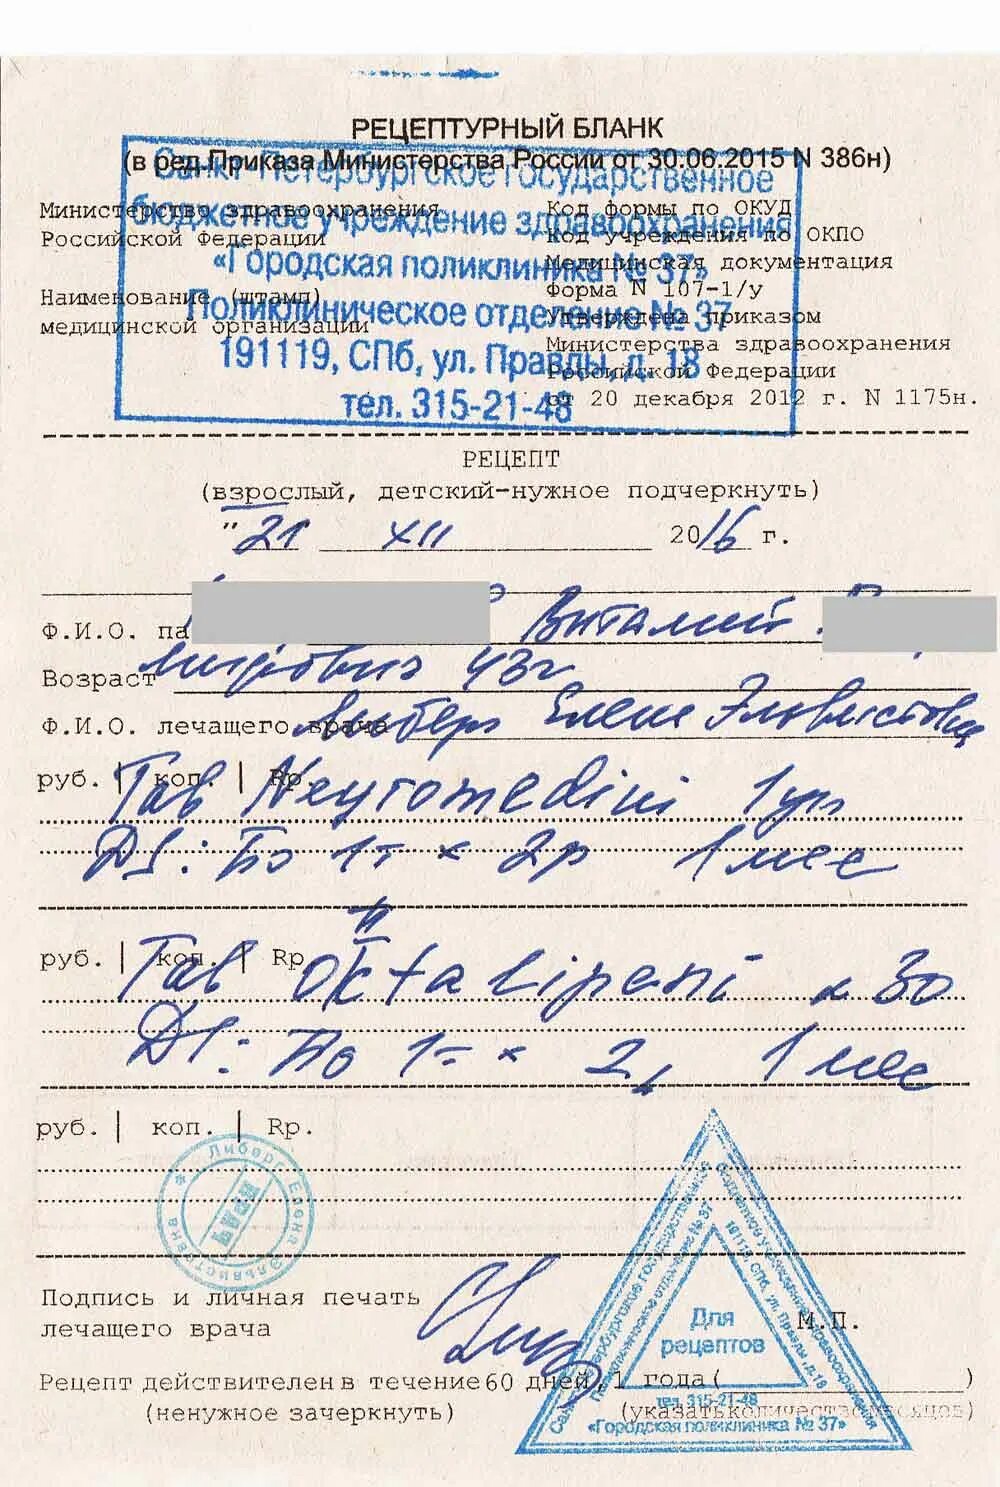 РЕЦЕПТУРНЫЙ БЛАНК
(в ред.Приказа Министерства России от 30.06.2015 N 386н)
Санкт-Петербургское государственное
бюджетное учреждение здравоохранения
«Городская поликлиника № 37»
Поликлиническое отделение № 37
191119, СПб, ул. Правды, д. 18
тел. 315-21-48
Министерство здравоохранения
Российской Федерации
Наименование (штамп)
медицинской организации
Код формы по ОКУД
Код учреждения по ОКПО
Медицинская документация
Форма N 107-1/у
Утверждена приказом
Министерства здравоохранения
Российской Федерации
от 20 декабря 2012 г. N 1175н.
РЕЦЕПТ
(взрослый, детский-нужное подчеркнуть)
"21 XII 2016 г.
Ф.И.О. па Виталий
Возраст 43г
Ф.И.О. лечащего врача Либерг Елена Эльвистовна
руб. | коп. | Rp.
Tab Neyromedini 1уп
DS: По 1т x 2р 1 мес
руб. | коп. | Rp
Tab oktalipeni x 30
DS: По 1т x 2 1 мес
руб. | коп. | Rp.
Либерг Елена Эльвистовна
ВРАЧ
Подпись и личная печать
лечащего врача
М.П.
Рецепт действителен в течение 60 дней, 1 года ( )
(ненужное зачеркнуть) (указать количество месяцев)
Санкт-Петербургское государственное
бюджетное учреждение здравоохранения
Поликлиническое отделение № 37
191119, СПб, ул. Правды, д.18
Для
рецептов
тел. 315-21-48
«Городская поликлиника № 37»